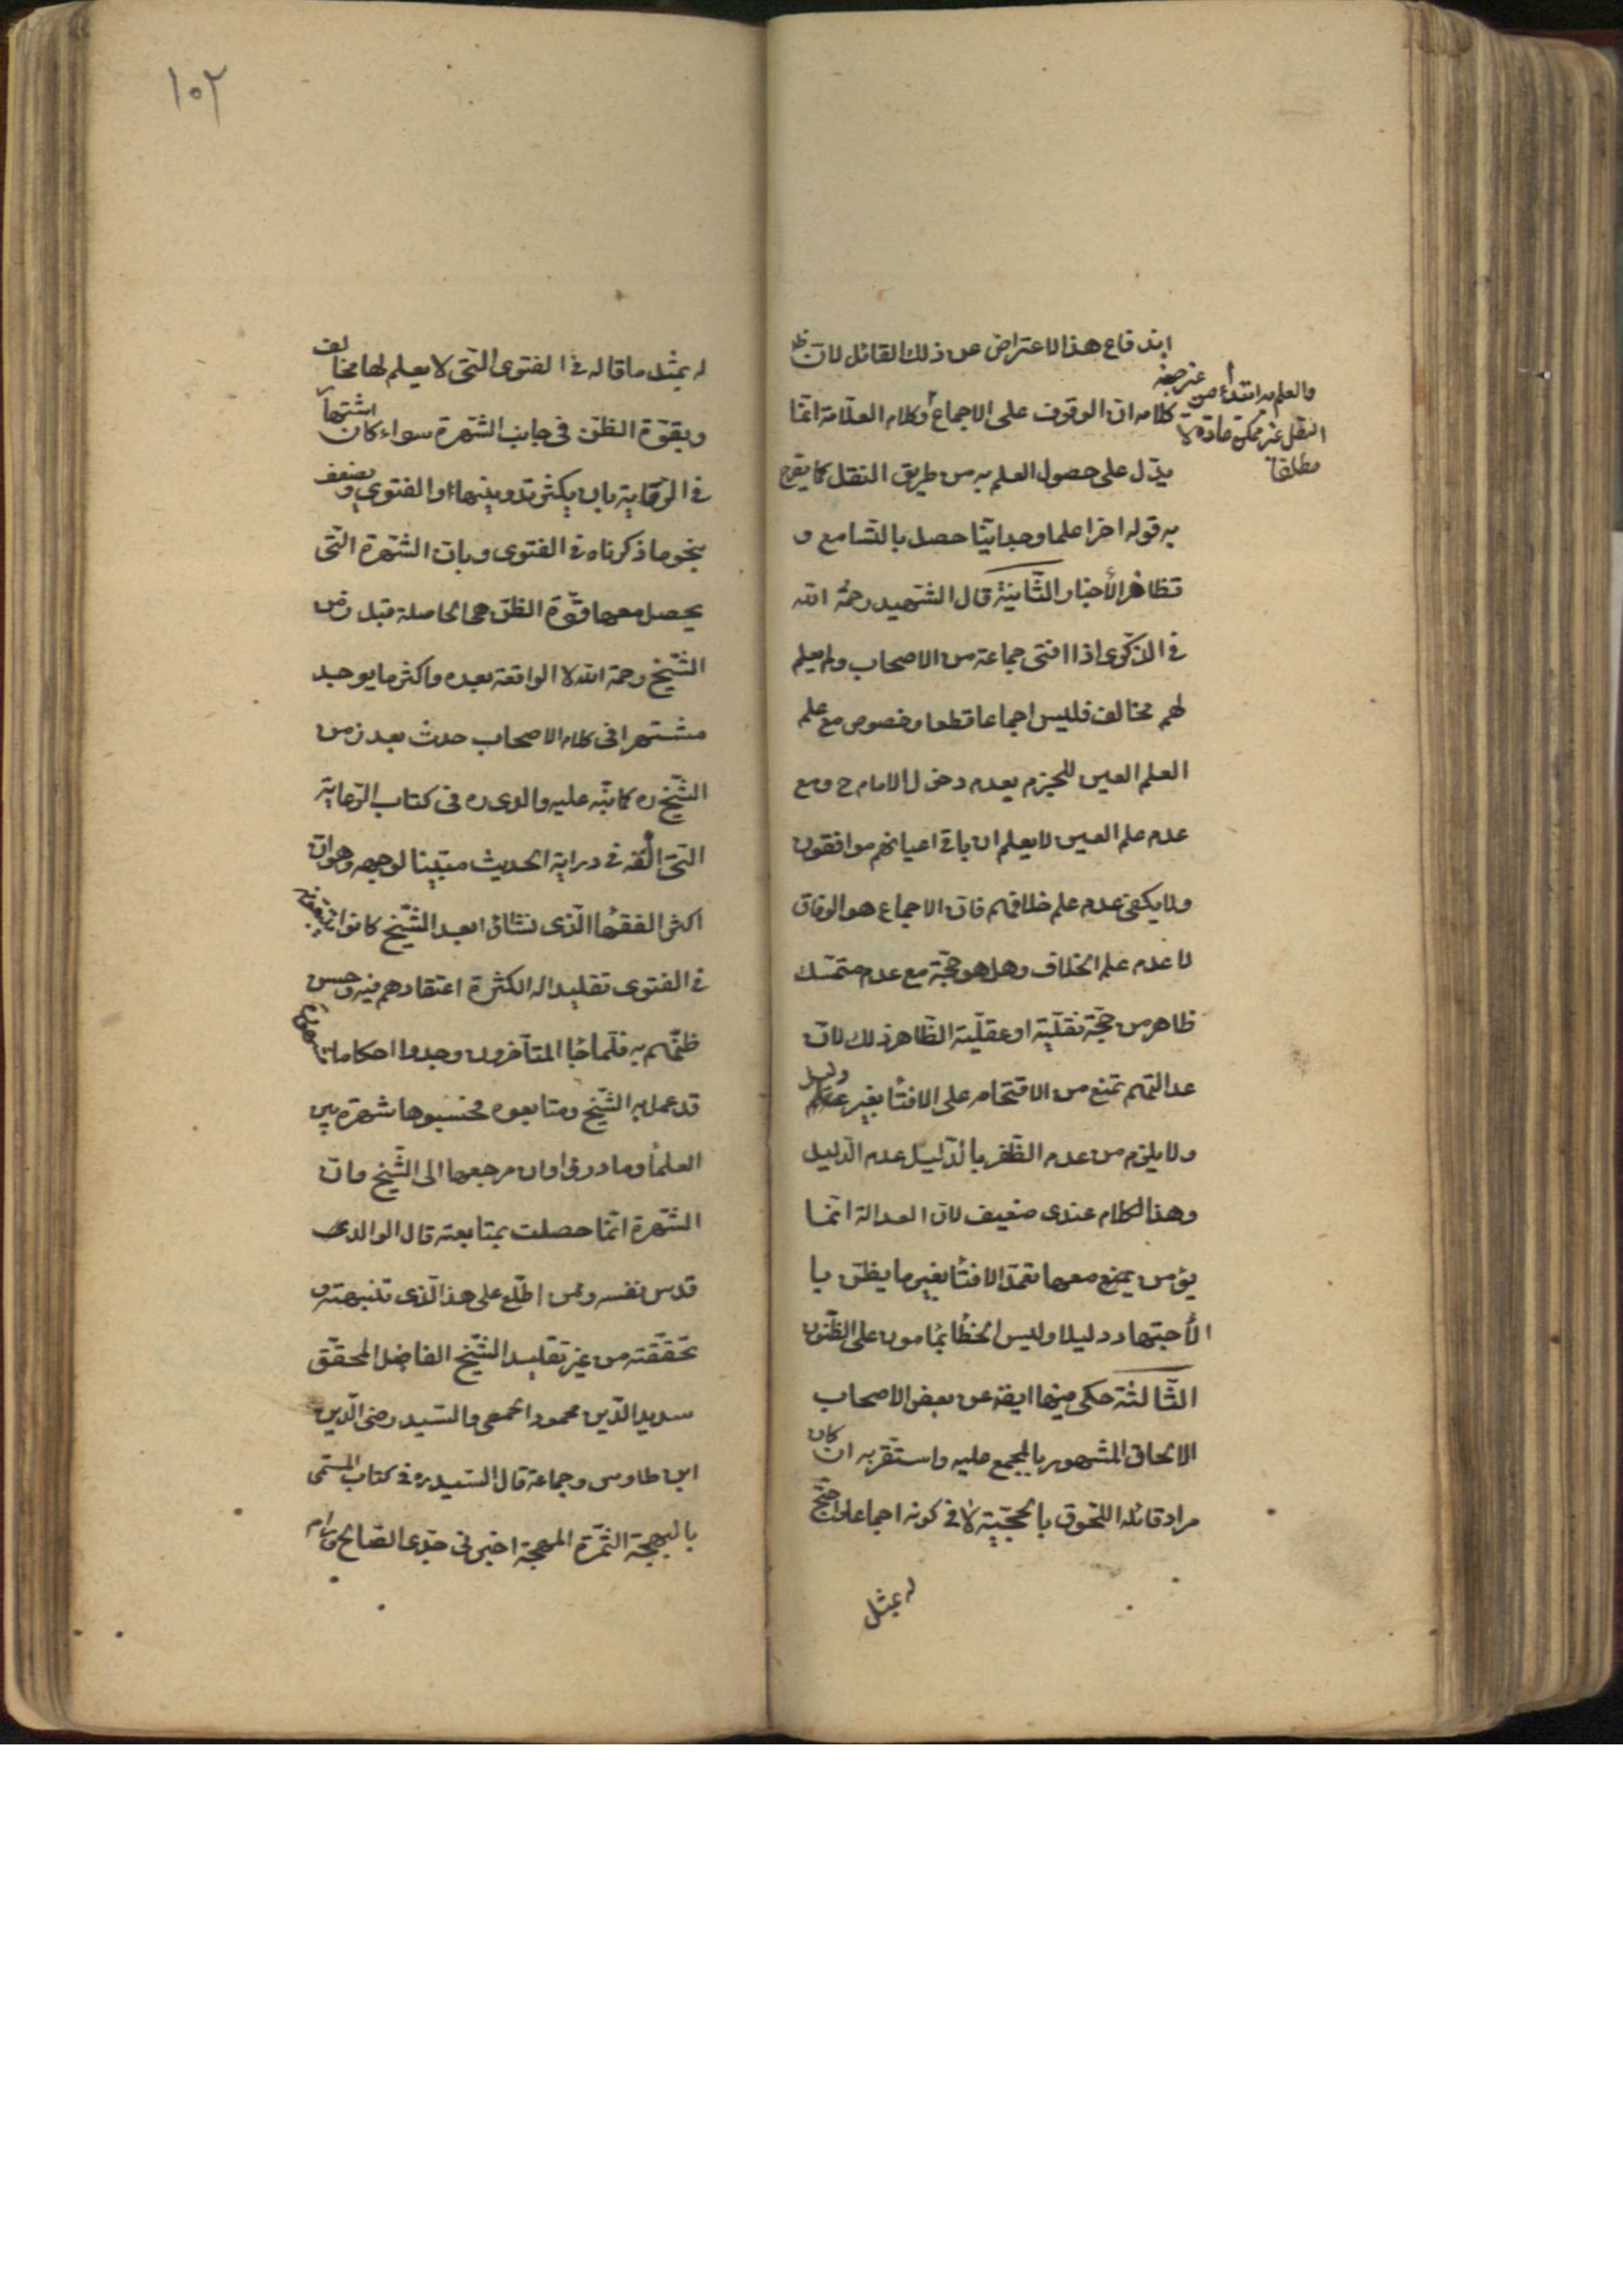 اندفاع هذا الاعتراض عن ذلك القائل لان ظ
كلامه ان الوقوف على الاجماع وكلام العلامة انما
والعلم به ابتداء من غير جهة
النقل غير ممكن عادة لا
مطلقا
يدل على حصول العلم به من طريق النقل كما يصرح
به قوله اخرا علما وجدانيا حصل بالتسامع و
تظافر الأخبار الثانية قال الشهيد رحمه الله
في الذكرى اذا افتى جماعة من الاصحاب ولم يعلم
لهم مخالف فليس اجماعا قطعا وخصوص مع علم
العلم العين للجزم بعدم دخول الامام ح ومع
عدم علم العين لا يعلم ان باقي اعيانهم موافقون
ولا يكفى عدم علم خلافهم فان الاجماع هو الوفاق
لا عدم علم الخلاف وهل هو حجة مع عدم متمسك
ظاهر من حجة نقلية او عقلية الظاهر ذلك لان
عدالتهم تمنع من الاقتحام على الافتأ بغير دليل
ولا يلزم من عدم الظفر بالدليل عدم الدليل
وهذا الكلام عندى ضعيف لان العدالة انما
يؤمن يمنع معها تعمد الافتأ بغير ما يظن با
لأجتهاد دليلا وليس الخطأ بمأمون على الظنون
الثالثة حكى فيها ايضه عن بعض الاصحاب
الالحاق المشهور بالمجمع عليه واستقربه ان كان
مراد قائله اللحوق بالحجية لا في كونه اجماعا واحتج
له بمثل
١٠٢
له بمثل ما قاله في الفتوى التى لا يعلم لها مخالف
وبقوة الظن في جانب الشهرة سواء كان اشتهارا
في الرواية بان يكثر تدوينها او الفتوى ويضعف
بنحو ما ذكرناه في الفتوى وبان الشهرة التى
يحصل معها قوة الظن هى الحاصلة قبل زمن
الشيخ رحمة الله لا الواقعة بعده واكثر ما يوجد
مشتهرا في كلام الاصحاب حدث بعد زمن
الشيخ ره كما نبه عليه والدى ره في كتاب الرعاية
التى الفه في دراية الحديث مبينا لوجهه وهو ان
اكثر الفقهأ الذى نشاؤا بعد الشيخ كانوا يتبعونه
في الفتوى تقليدا له الكثرة اعتقادهم فيه وحسن
ظنهم به فلما جأ المتأخرون وجدوا احكاما مشهورة
قد عمل بها الشيخ ومتابعوه فحسبوها شهرة بين
العلمأ وما دروا وان مرجعها الى الشيخ وان
الشهرة انما حصلت بمتابعته قال الوالدى
قدس نفسه وممن اطلع على هذا الذى تنبهته و
تحققته من غير تقليد الشيخ الفاضل المحقق
سديد الدين محمود الحمصى والسيد رضى الدين
ابن طاوس وجماعة قال السيد ره في كتاب المسمى
بالبهجة الثمرة المهجة اخبرنى جدى الصالح ورام